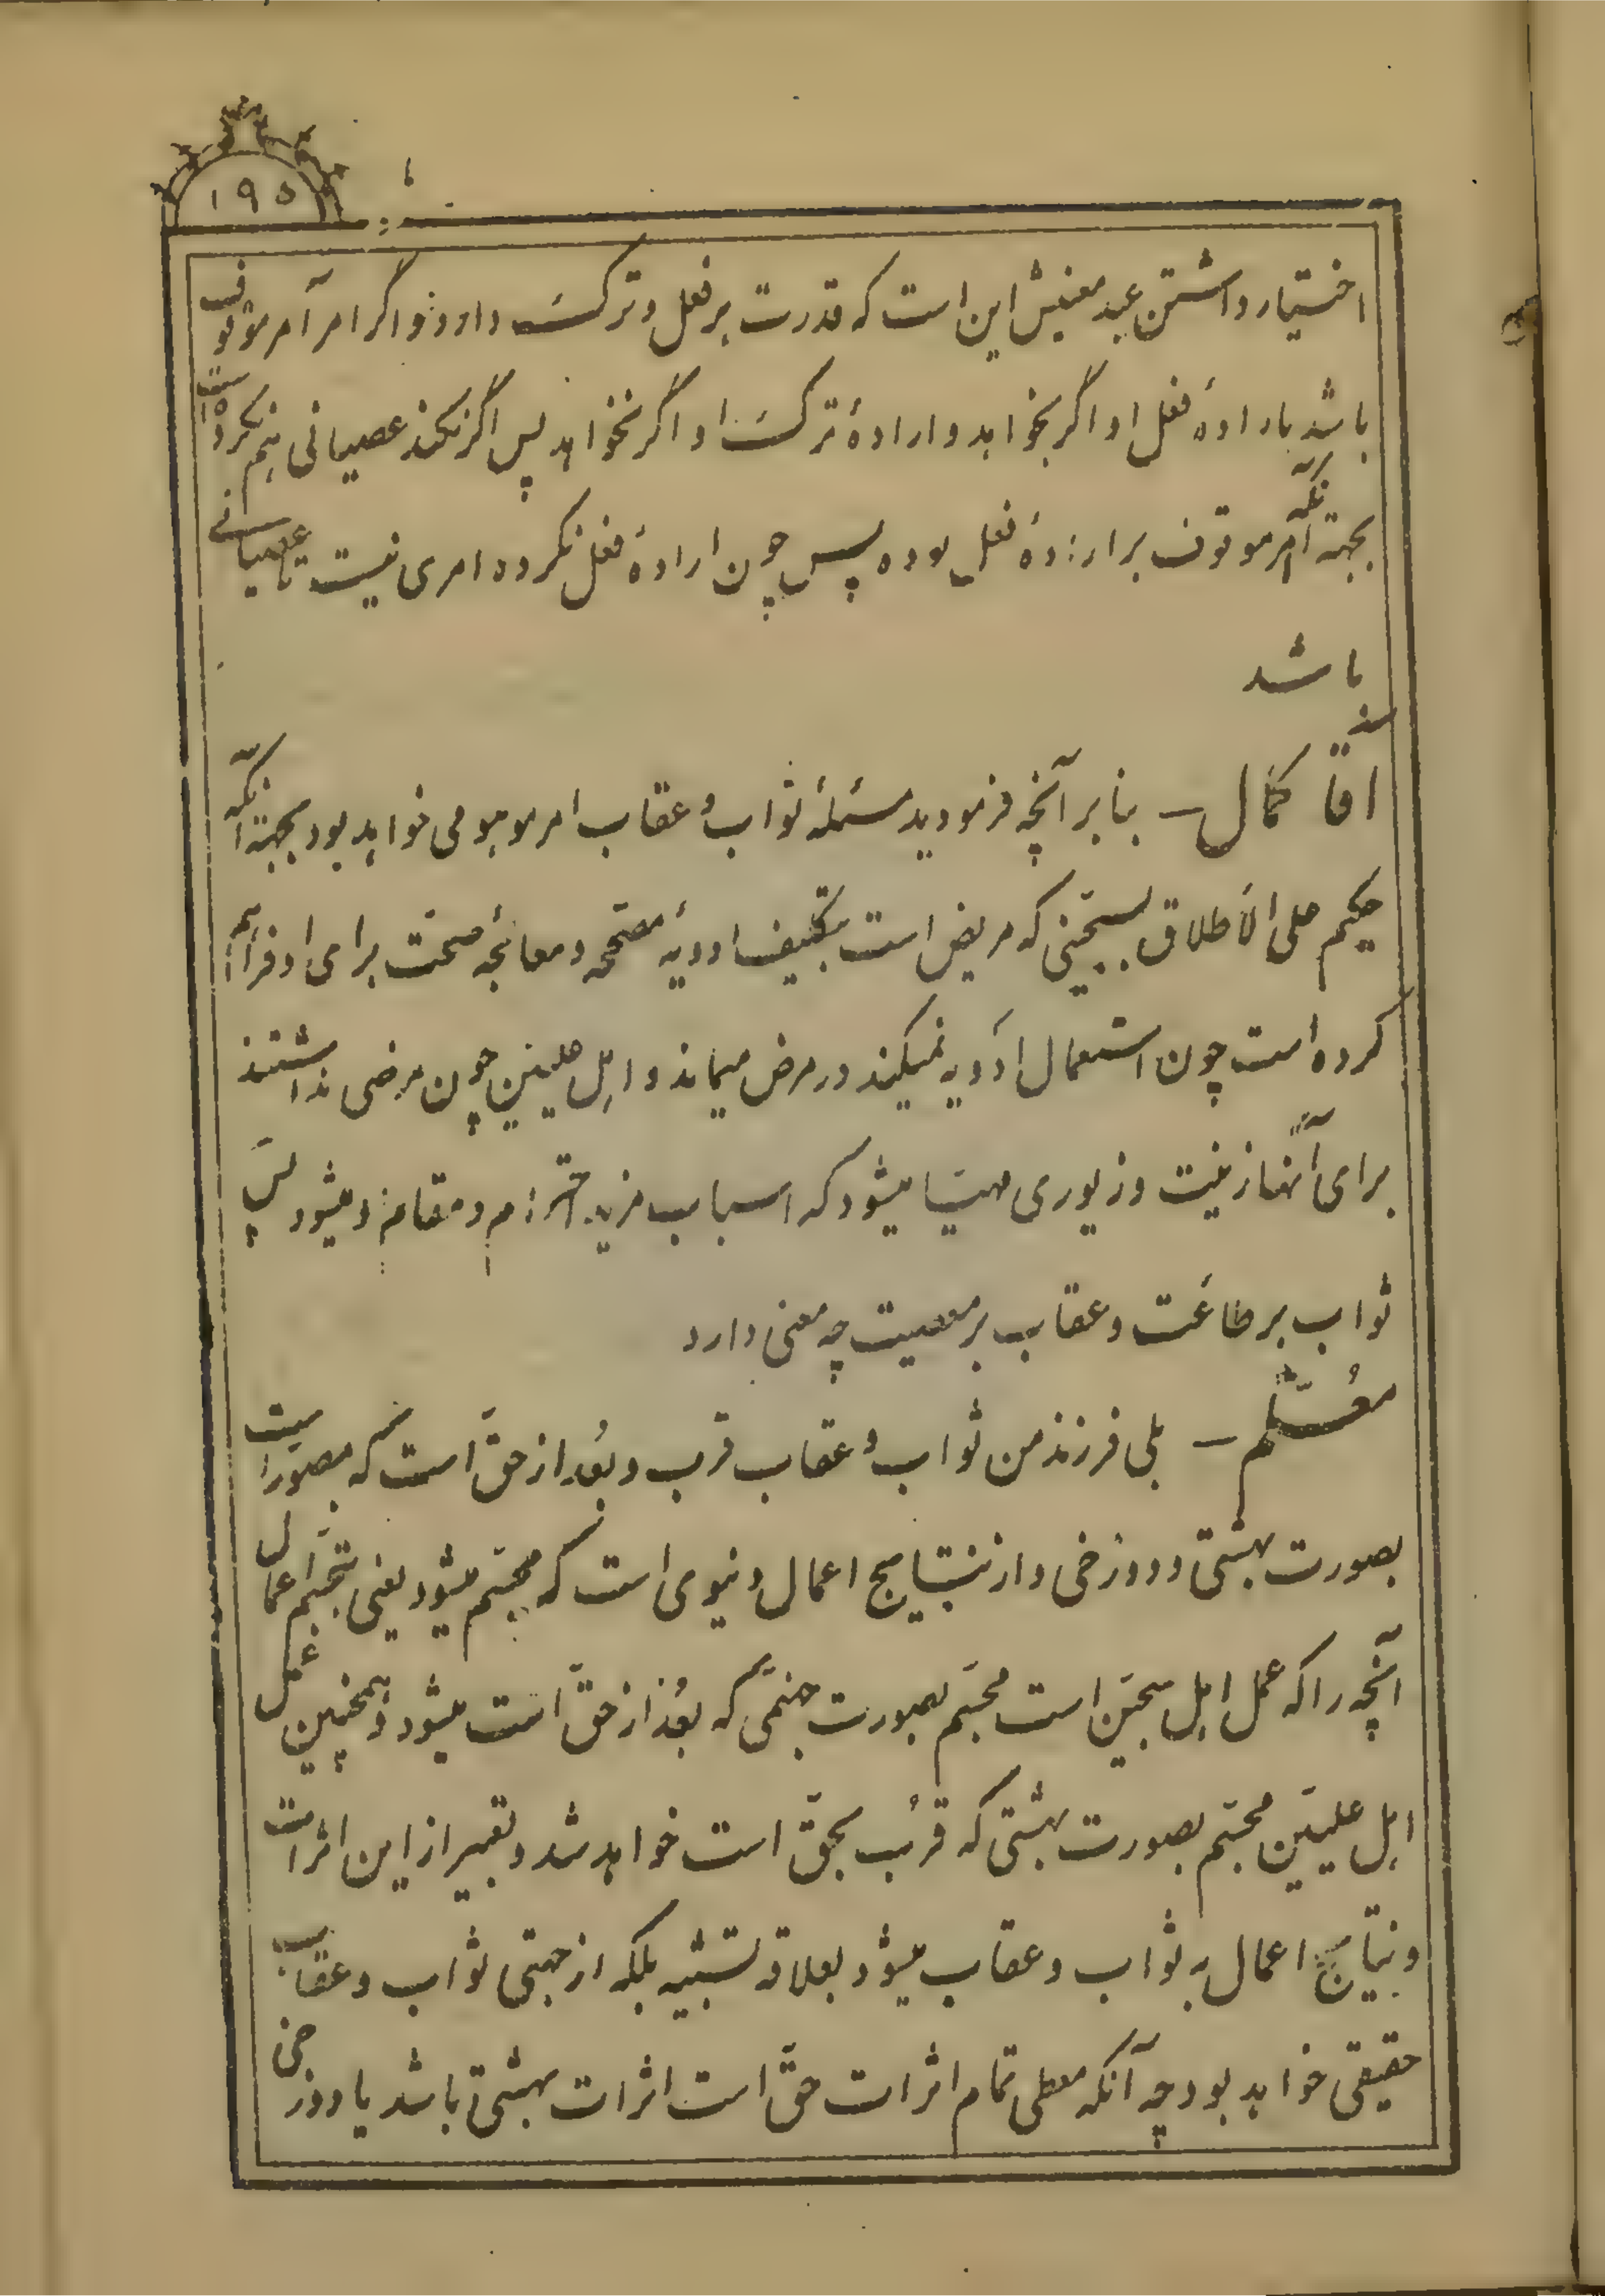 ۱۹۵
اختیار داشتن عبد معنیش این است که قدرت بر فعل و ترک داردؤ اگر امر آمر موقوف
باشد باراده فعل او اگر بخواهد و ارادهٔ ترک او اگر نخواهد پس اگر نکند عصیانی هم نکرده است
بجهة آنکه امر موقوف بر ارادهٔ فعل بوده پس چون ارادهٔ فعل نکرده امری نیست تا عصیانی
باشد
اقا کمال — بنابر آنچه فرمودید مسئلهٔ ثواب و عقاب امر موهومی خواهد بود بجهة آنکه
حکیم علی الأطلاق بسجّینی که مریض است بتکلیف ادویهٔ مصحّحه و معالجهٔ صحّت برای او فراهم
کرده است چون استعمال ادویه نمیکند در مرض میماند و اهل علیین چون مرضی نداشتند
برای آنها زینت و زیوری مهیّا میشود که اسباب مزید احترام و مقام او میشود پس
ثواب بر طاعت و عقاب بر معصیت چه معنی دارد
معُلّم — بلی فرزند من ثواب و عقاب قرب و بُعد از حقّ است که بصورت است
بصورت بهشتی و دوزخی و از نتایج اعمال دنیوی است که مجسّم میشود یعنی تجسّم اعمال
آنچه را که عمل اهل سجّین است مجسّم بصورت جهنمّی که بُعد از حقّ است میشود و همچنین عمل
اهل علیّین مجسّم بصورت بهشتی که قرُب بحقّ است خواهد شد و تعبیر از این اثرات
و نتایج اعمال به ثواب و عقاب میشود بعلاقه تشبیه بلکه از جهتی ثواب و عقاب
حقیقی خواهد بود چه آنکه معطی تمام اثرات حقّ است اثرات بهشتی باشد یا دوزخی